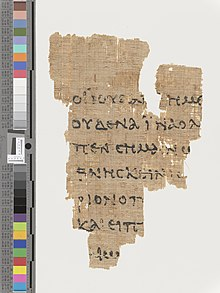 ΟΙ ΙΟΥΔΑΙ ΗΜΕ
ΟΥΔΕΝΑ ΙΝΑ Ο Λ
ΠΕΝ ΣΗΜΑΙΝΩ
ΘΝΗΣΚΕΙΝ ΙΣ
ΡΙΟΝ Ο Π
ΚΑΙ ΕΙΠ